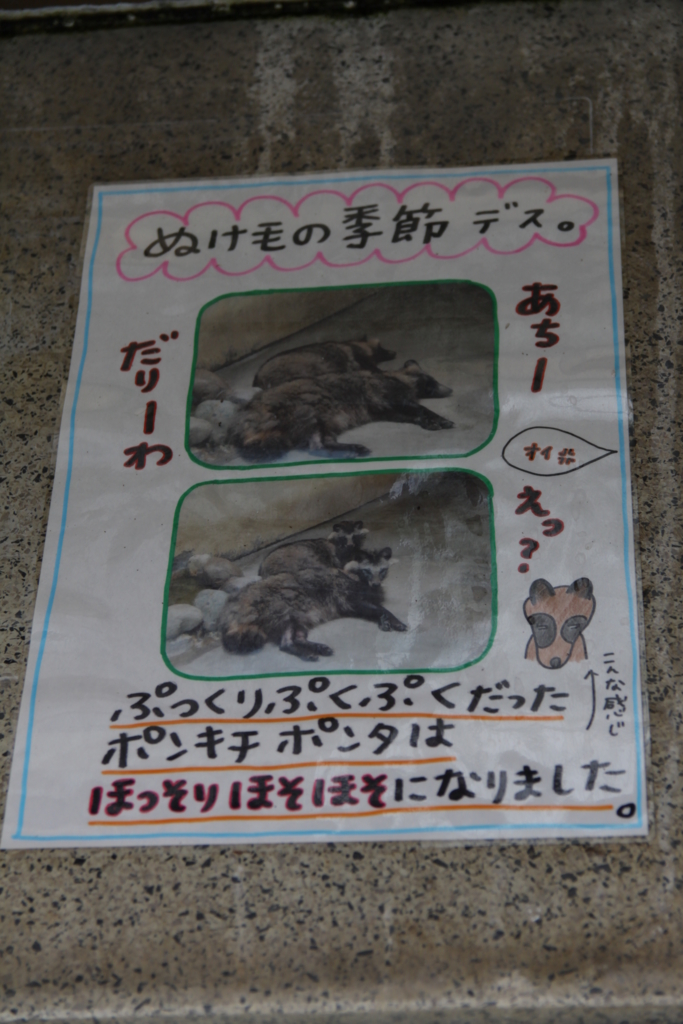 ぬけ毛の季節 デス。
あちー
だりーわ
オイ
えっ?
こんな感じ
ぷっくりぷくぷくだった
ポンキチ ポンタは
ほっそりほそほそになりました。